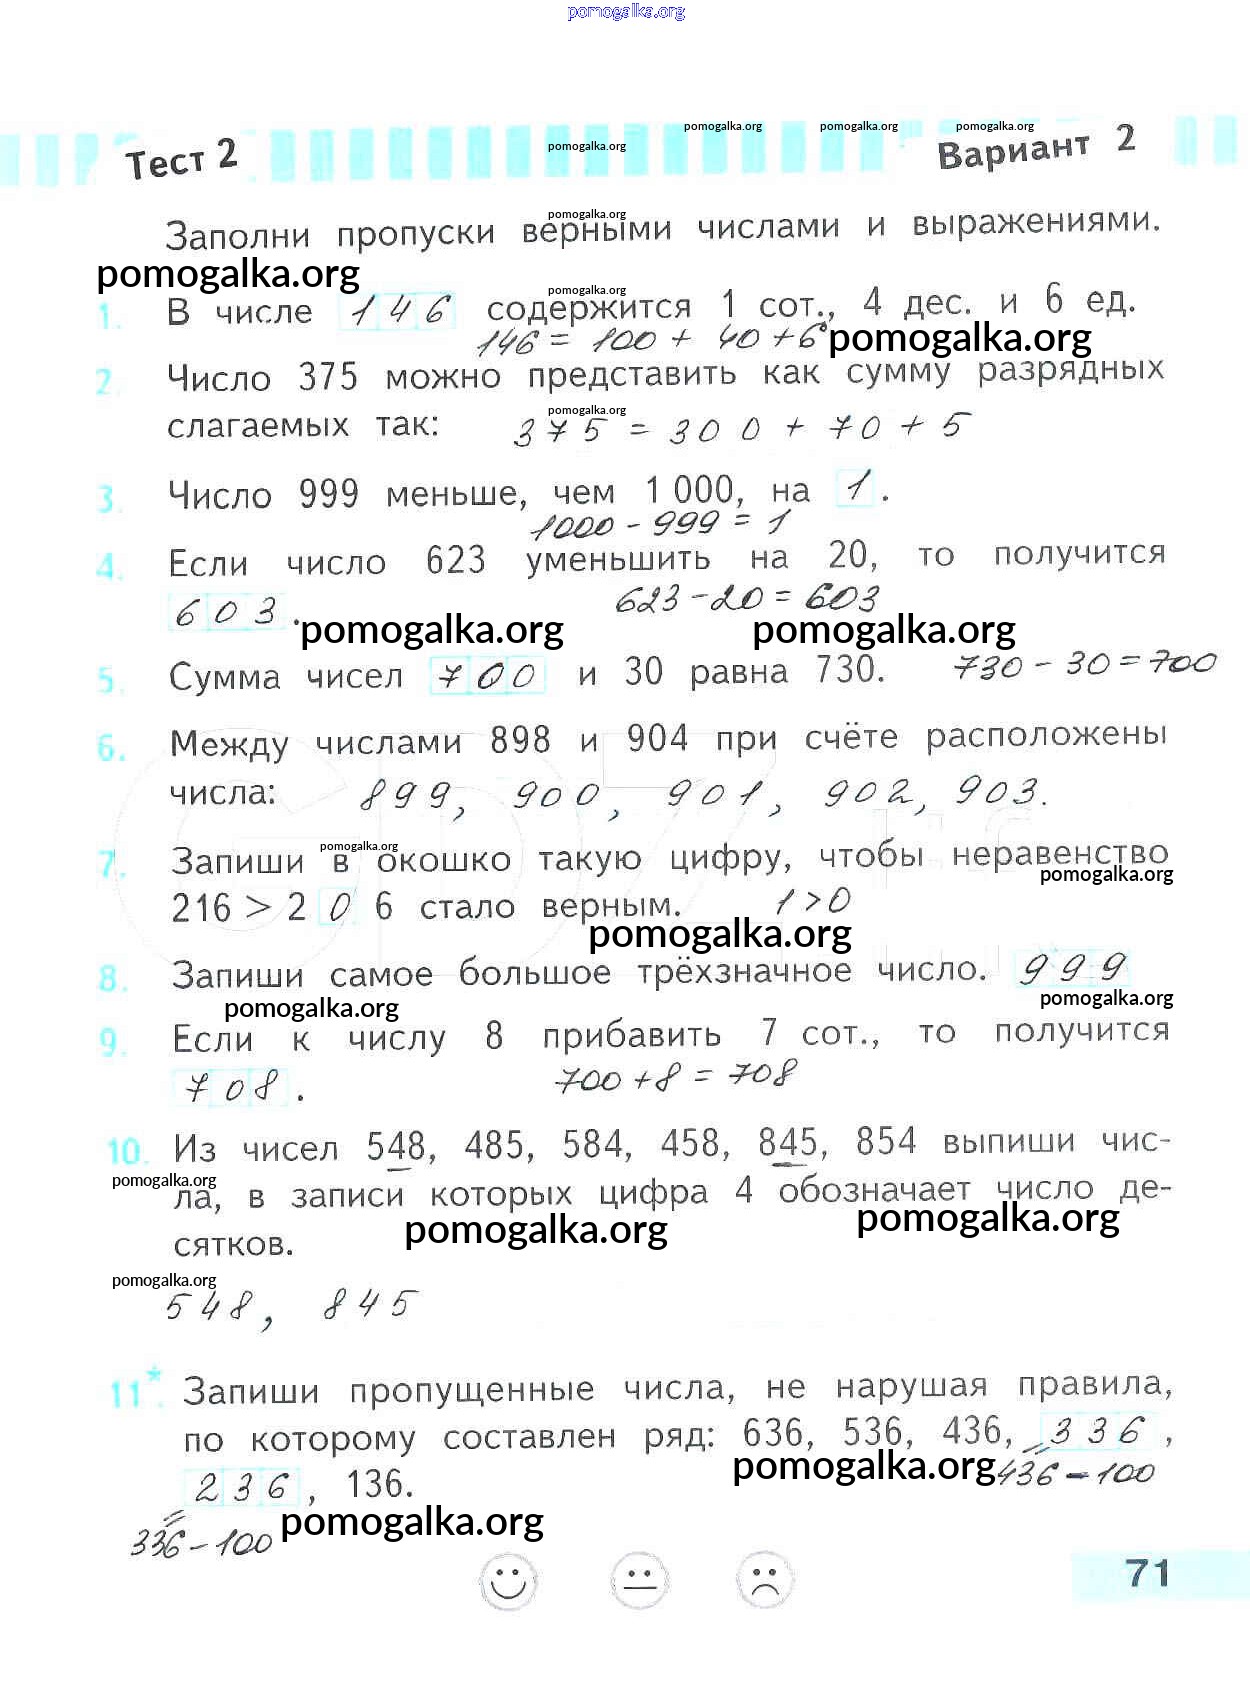 pomogalka.org
pomogalka.org pomogalka.org pomogalka.org
Тест 2 pomogalka.org Вариант 2
pomogalka.org
Заполни пропуски верными числами и выражениями.
pomogalka.org pomogalka.org
1. В числе 146 содержится 1 сот., 4 дес. и 6 ед.
146 = 100 + 40 + 6 pomogalka.org
2. Число 375 можно представить как сумму разрядных
pomogalka.org
слагаемых так: 375 = 300 + 70 + 5
3. Число 999 меньше, чем 1 000, на 1.
1000 - 999 = 1
4. Если число 623 уменьшить на 20, то получится
603. 623 - 20 = 603
pomogalka.org pomogalka.org
5. Сумма чисел 700 и 30 равна 730. 730 - 30 = 700
6. Между числами 898 и 904 при счёте расположены
числа: 899, 900, 901, 902, 903.
pomogalka.org
7. Запиши в окошко такую цифру, чтобы неравенство
pomogalka.org
216 > 2 0 6 стало верным. 1 > 0
pomogalka.org
8. Запиши самое большое трёхзначное число. 999
pomogalka.org pomogalka.org
9. Если к числу 8 прибавить 7 сот., то получится
708. 700 + 8 = 708
10. Из чисел 548, 485, 584, 458, 845, 854 выпиши чис-
pomogalka.org
ла, в записи которых цифра 4 обозначает число де-
pomogalka.org pomogalka.org
сятков.
pomogalka.org
548, 845
11*. Запиши пропущенные числа, не нарушая правила,
по которому составлен ряд: 636, 536, 436, 336,
pomogalka.org 436 - 100
236, 136.
pomogalka.org
336 - 100
71